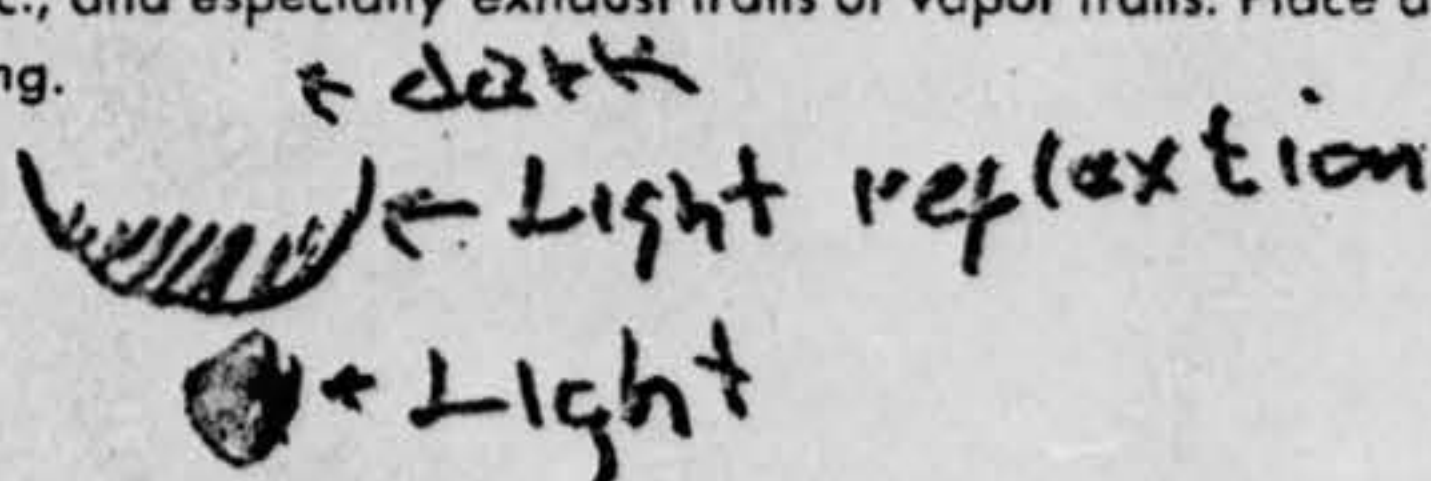 c., and especially exhaust trails or vapor trails. Place a
ng.
← dark
← Light reflaxtion
← Light